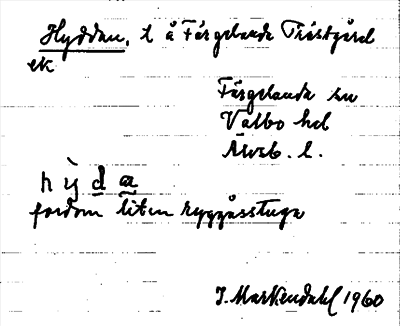 Hyddan, t å Färgelanda Prästgård
ek
Färgelanda sn
Valbo hd
Älvsb. l.
h y̆ d a
fordom liten ryggåsstuga
I. Markendahl 1960